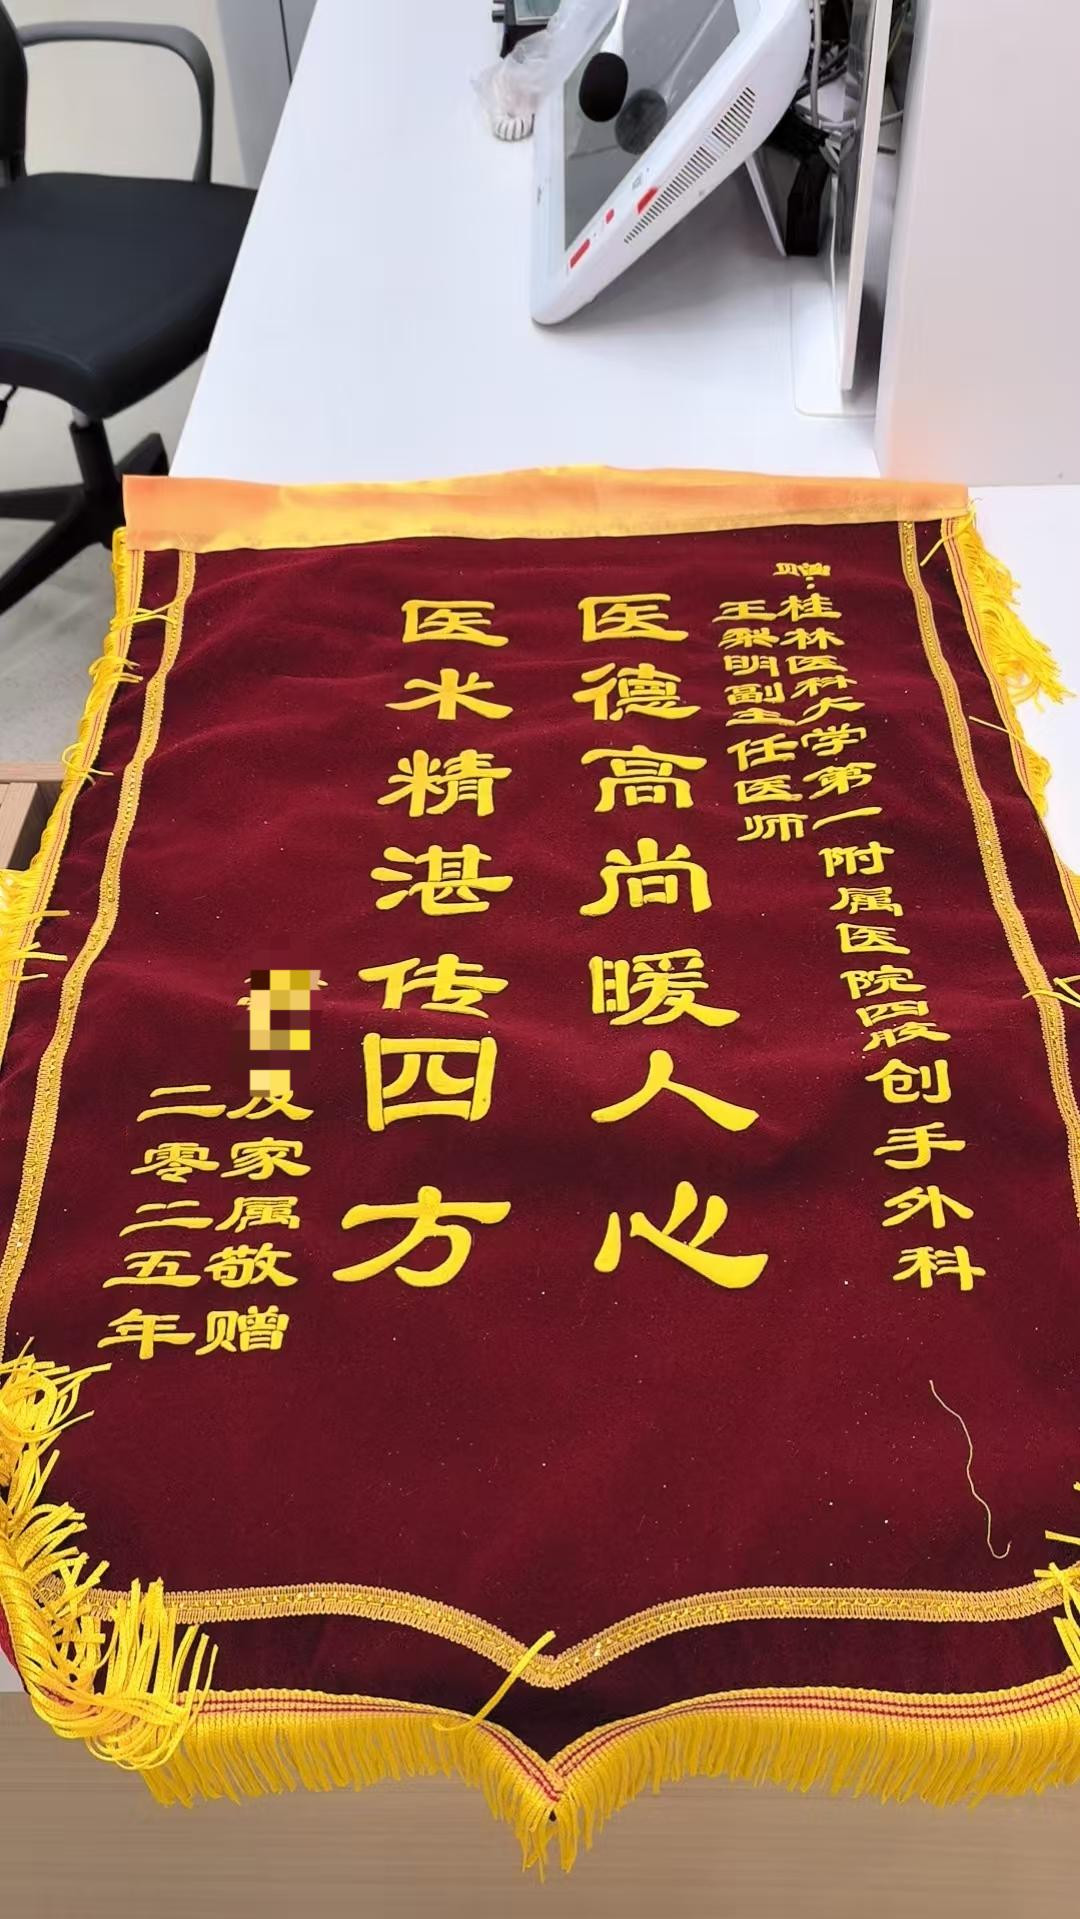 赠：桂林医科大学第一附属医院四肢创手外科
王梨明副主任医师
医德高尚暖人心
医术精湛传四方
及家属敬赠
二零二五年